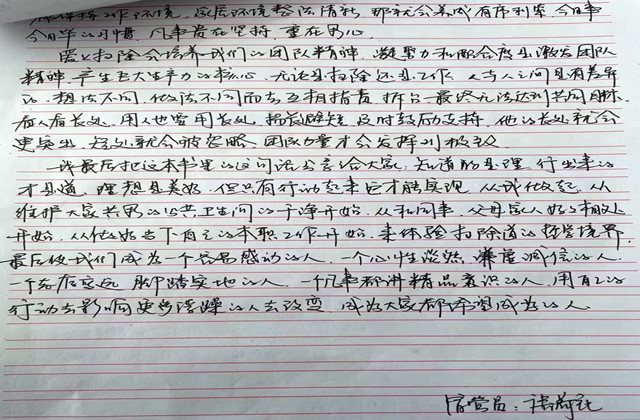 保持工作环境，家居环境整洁清新，那就会养成有序利索，今日事
今日毕的习惯，凡事贵在坚持，重在用心。
第二扫除会培养我们的团队精神，凝聚力和配合度是激发团队
精神，产生巨大生产力的核心，无论是扫除还是工作，人与人之间是有差异
的，想法不同，做法不同而去互相指责，拆台，最终无法达到共同目标。
看人看长处，用人也要用长处，扬长避短，及时鼓励支持，他的长处就会
更突出，短处就会被忽略，团队力量才会发挥到极致
我最后把这本书里的这句话分享给大家，知道的是理，行出来的
才是道，理想是美好，但只有行动起来它才能实现，从我做起，从
维护大家共用的公共卫生间的干净开始，从和同事，父母家人好好相处
开始，从做好当下自己的本职工作开始，来体验扫除道的哲学境界，
最后使我们成为一个容易感动的人，一个心性淡然，谦虚诚信的人，
一个脚踏实地的人，一个凡事都讲精品意识的人，用自己的
行动去影响更多浮躁的人去改变，成为大家都希望成为的人